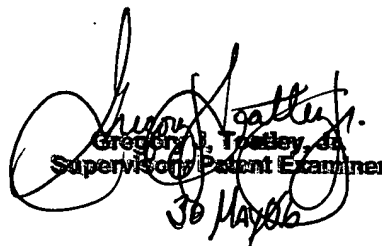 Gregory J. Toatley, Jr.
Gregory J. Toatley, Jr.
Supervisory Patent Examiner
30 May 06